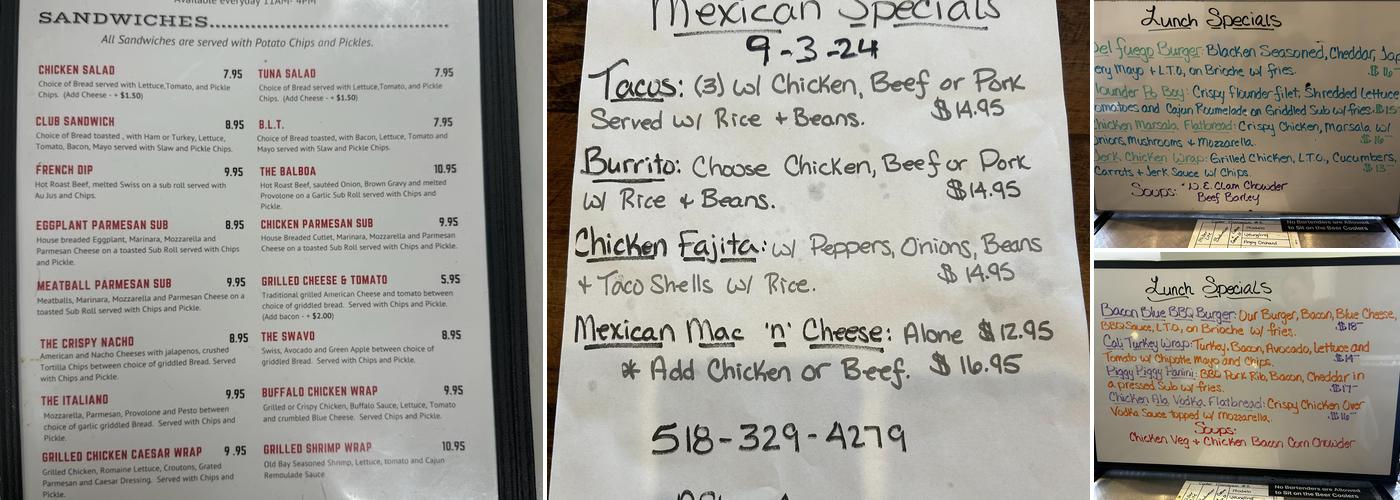 Available everyday 11AM- 4PM
SANDWICHES
All Sandwiches are served with Potato Chips and Pickles.
CHICKEN SALAD 7.95
Choice of Bread served with Lettuce,Tomato, and Pickle
Chips. (Add Cheese - + $1.50)
CLUB SANDWICH 8.95
Choice of Bread toasted , with Ham or Turkey, Lettuce,
Tomato, Bacon, Mayo served with Slaw and Pickle Chips.
FRENCH DIP 9.95
Hot Roast Beef, melted Swiss on a sub roll served with
Au Jus and Chips.
EGGPLANT PARMESAN SUB 8.95
House breaded Eggplant, Marinara, Mozzarella and
Parmesan Cheese on a toasted Sub Roll served with Chips
and Pickle.
MEATBALL PARMESAN SUB 9.95
Meatballs, Marinara, Mozzarella and Parmesan Cheese on a
toasted Sub Roll served with Chips and Pickle.
THE CRISPY NACHO 8.95
American and Nacho Cheeses with jalapenos, crushed
Tortilla Chips between choice of griddled Bread. Served
with Chips and Pickle.
THE ITALIANO 9.95
Mozzarella, Parmesan, Provolone and Pesto between
choice of garlic griddled Bread. Served with Chips and
Pickle.
GRILLED CHICKEN CAESAR WRAP 9.95
Grilled Chicken, Romaine Lettuce, Croutons, Grated
Parmesan and Caesar Dressing. Served with Chips and
Pickle.
TUNA SALAD 7.95
Choice of Bread served with Lettuce,Tomato, and Pickle
Chips. (Add Cheese - + $1.50)
B.L.T. 7.95
Choice of Bread toasted, with Bacon, Lettuce, Tomato and
Mayo served with Slaw and Pickle Chips.
THE BALBOA 10.95
Hot Roast Beef, sautéed Onion, Brown Gravy and melted
Provolone on a Garlic Sub Roll served with Chips and
Pickle.
CHICKEN PARMESAN SUB 9.95
House Breaded Cutlet, Marinara, Mozzarella and Parmesan
Cheese on a toasted Sub Roll served with Chips and Pickle.
GRILLED CHEESE & TOMATO 5.95
Traditional grilled American Cheese and tomato between
choice of griddled bread. Served with Chips and Pickle.
(Add bacon - + $2.00)
THE SWAVO 8.95
Swiss, Avocado and Green Apple between choice of
griddled Bread. Served with Chips and Pickle.
BUFFALO CHICKEN WRAP 9.95
Grilled or Crispy Chicken, Buffalo Sauce, Lettuce, Tomato
and crumbled Blue Cheese. Served Chips and Pickle.
GRILLED SHRIMP WRAP 10.95
Old Bay Seasoned Shrimp, Lettuce, tomato and Cajun
Remoulade Sauce
Mexican Specials
9-3-24
Tacos: (3) w/ Chicken, Beef or Pork
Served w/ Rice + Beans. $14.95
Burrito: Choose Chicken, Beef or Pork
w/ Rice + Beans. $14.95
Chicken Fajita: w/ Peppers, Onions, Beans
+ Taco Shells w/ Rice. $14.95
Mexican Mac 'n' Cheese: Alone $12.95
* Add Chicken or Beef. $16.95
518-329-4279
Lunch Specials
Del fuego Burger: Blacken Seasoned, Cheddar, Jap
ery Mayo + L.T.O, on Brioche w/ fries. $16
lounder Po Boy: Crispy flounder filet, Shredded Lettuce
omatoes and Cajun Roumelade on Griddled Sub w/ fries.
Chicken Marsala Flatbread: Crispy Chicken, Marsala w/
Onions, Mushrooms + Mozzarella. $16
Jerk Chicken Wrap: Grilled Chicken, L.T.O., Cucumbers,
Carrots + Jerk Sauce w/ Chips. $15
Soups: N.E. Clam Chowder
Beef Barley
No Bartenders are Allowed
to Sit on the Beer Coolers
Lunch Specials
Bacon Blue BBQ Burger: Our Burger, Bacon, Blue Cheese,
BBQ Sauce, L.T.O, on Brioche w/ fries. $18
Cali Turkey Wrap: Turkey, Bacon, Avocado, Lettuce and
Tomato w/ Chipotle Mayo and Chips. $14
Piggy Piggy Panini: BBQ Pork Rib, Bacon, Cheddar in
a pressed Sub w/ fries. $17
Chicken Ala Vodka Flatbread: Crispy Chicken Over
Vodka Sauce topped w/ Mozzarella. $16
Soups:
Chicken Veg + Chicken Bacon Corn Chowder
No Bartenders are Allow
to Sit on the Beer Coolers